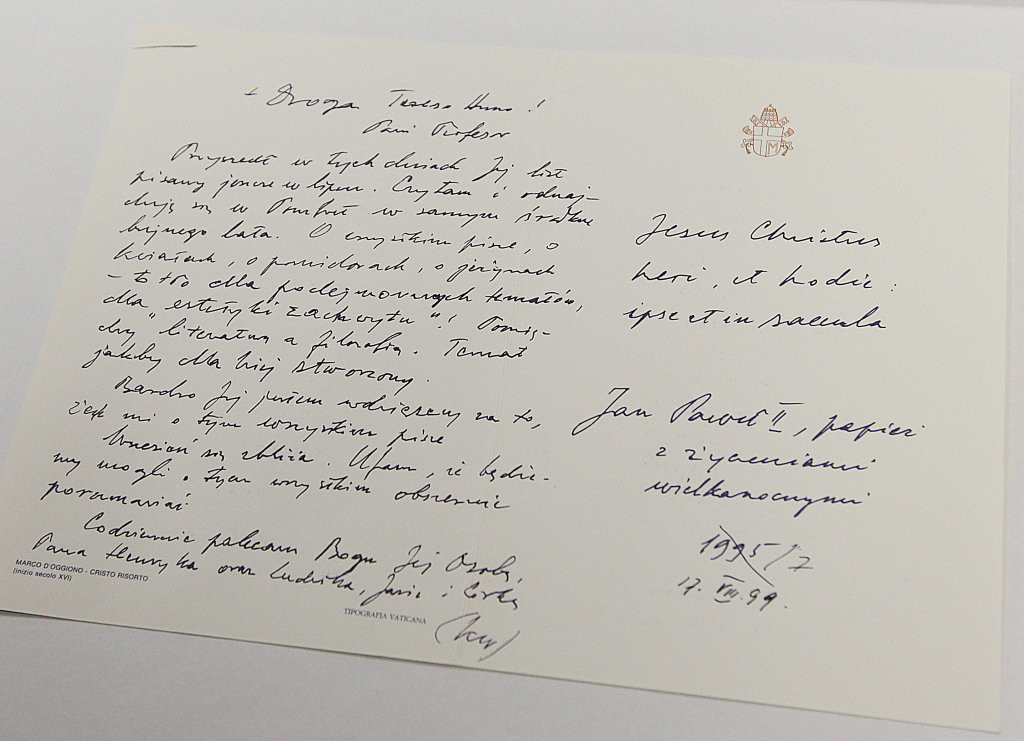 + Droga Tereso Anno!
Pani Profesor
Przyszedł w tych dniach Jej list
pisany jeszcze w lipcu. Czytam i odnaj-
duję się w Pomfret w samym środku
bujnego lata. O wszystkim pisze, o
kwiatach, o pomidorach, o jeżynach
- to tło dla podejmowanych tematów,
dla „estetyki zachwytu"! Pomię-
dzy literaturą a filozofią. Temat
jakby dla Niej stworzony.
Bardzo Jej jestem wdzięczny za to,
że mi o tym wszystkim pisze
Wrzesień się zbliża. Ufam, że będzie-
my mogli o tym wszystkim obszernie
porozmawiać
Codziennie polecam Bogu Jej Osobę,
Pana Henryka oraz Ludwika, Jasia i
MARCO D'OGGIONO - CRISTO RISORTO
(inizio secolo XVI)
TIPOGRAFIA VATICANA
M
Jesus Christus
heri, et hodie:
ipse et in saecula
Jan Paweł II, papież
z życzeniami
wielkanocnymi
1995/7
17. VIII. 99.